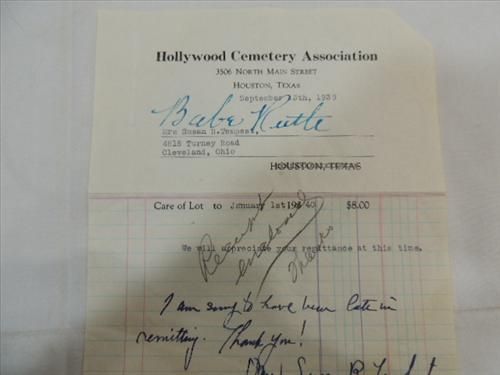 Hollywood Cemetery Association
3506 North Main Street
Houston, Texas
September 15th, 1939
Babe Ruth
Mrs Susan R.Tempest
4815 Turney Road
Cleveland, Ohio
HOUSTON, TEXAS
Care of Lot to January 1st 1940 $8.00
We will appreciate your remittance at this time.
Receipt
enclosed
Thanks
I am sorry to have been late in
remitting. Thank you!
Mrs. Susan R. Tempest